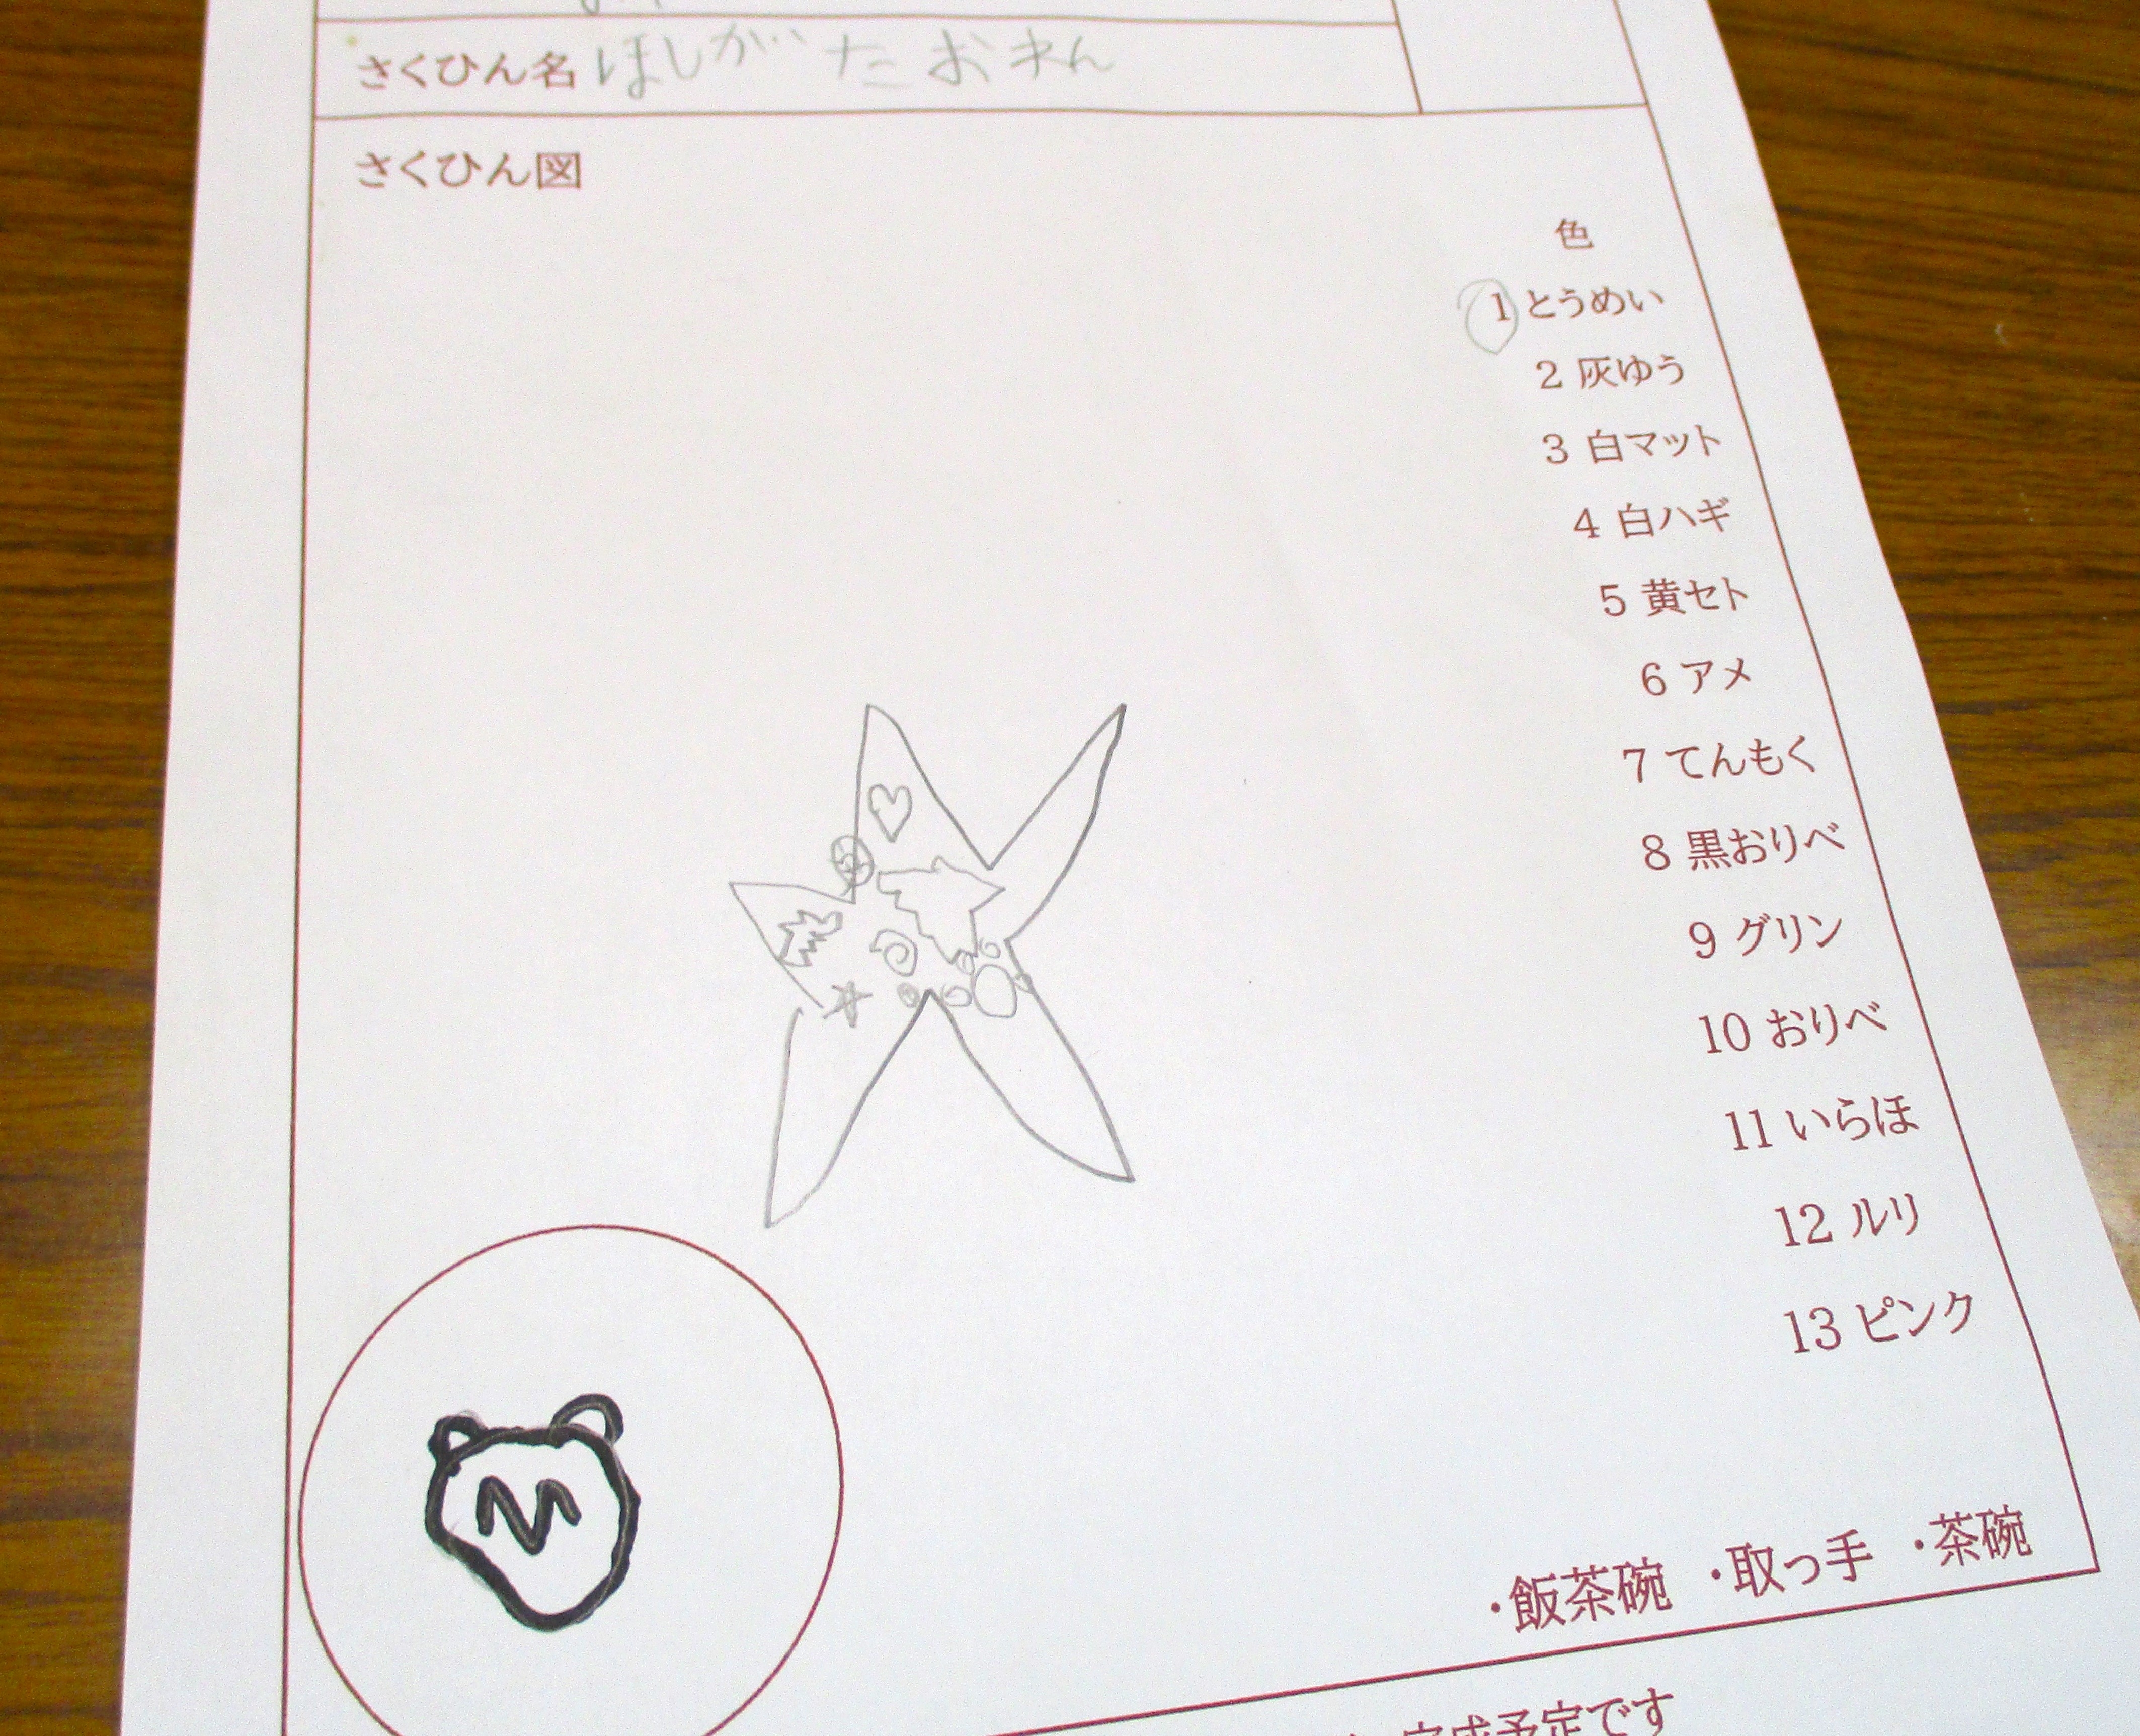 さくひん名 ほしがたおれん
さくひん図
色
1 とうめい
2 灰ゆう
3 白マット
4 白ハギ
5 黄セト
6 アメ
7 てんもく
8 黒おりべ
9 グリン
10 おりべ
11 いらほ
12 ルリ
13 ピンク
M
・飯茶碗 ・取っ手 ・茶碗
完成予定です